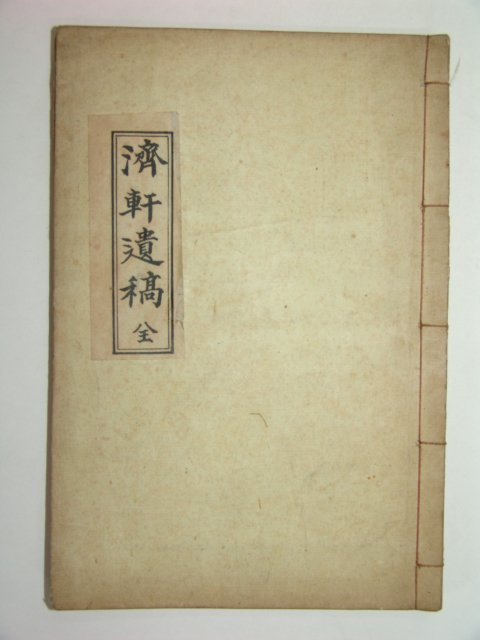 濟軒遺稿 全